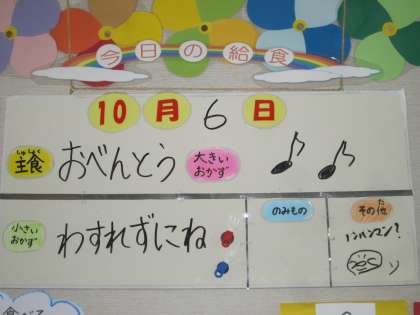 今日の給食
10月6日
主食
しゅしょく
おべんとう
大きい
おかず
小さい
おかず
わすれずにね
のみもの
その他
た
食べる